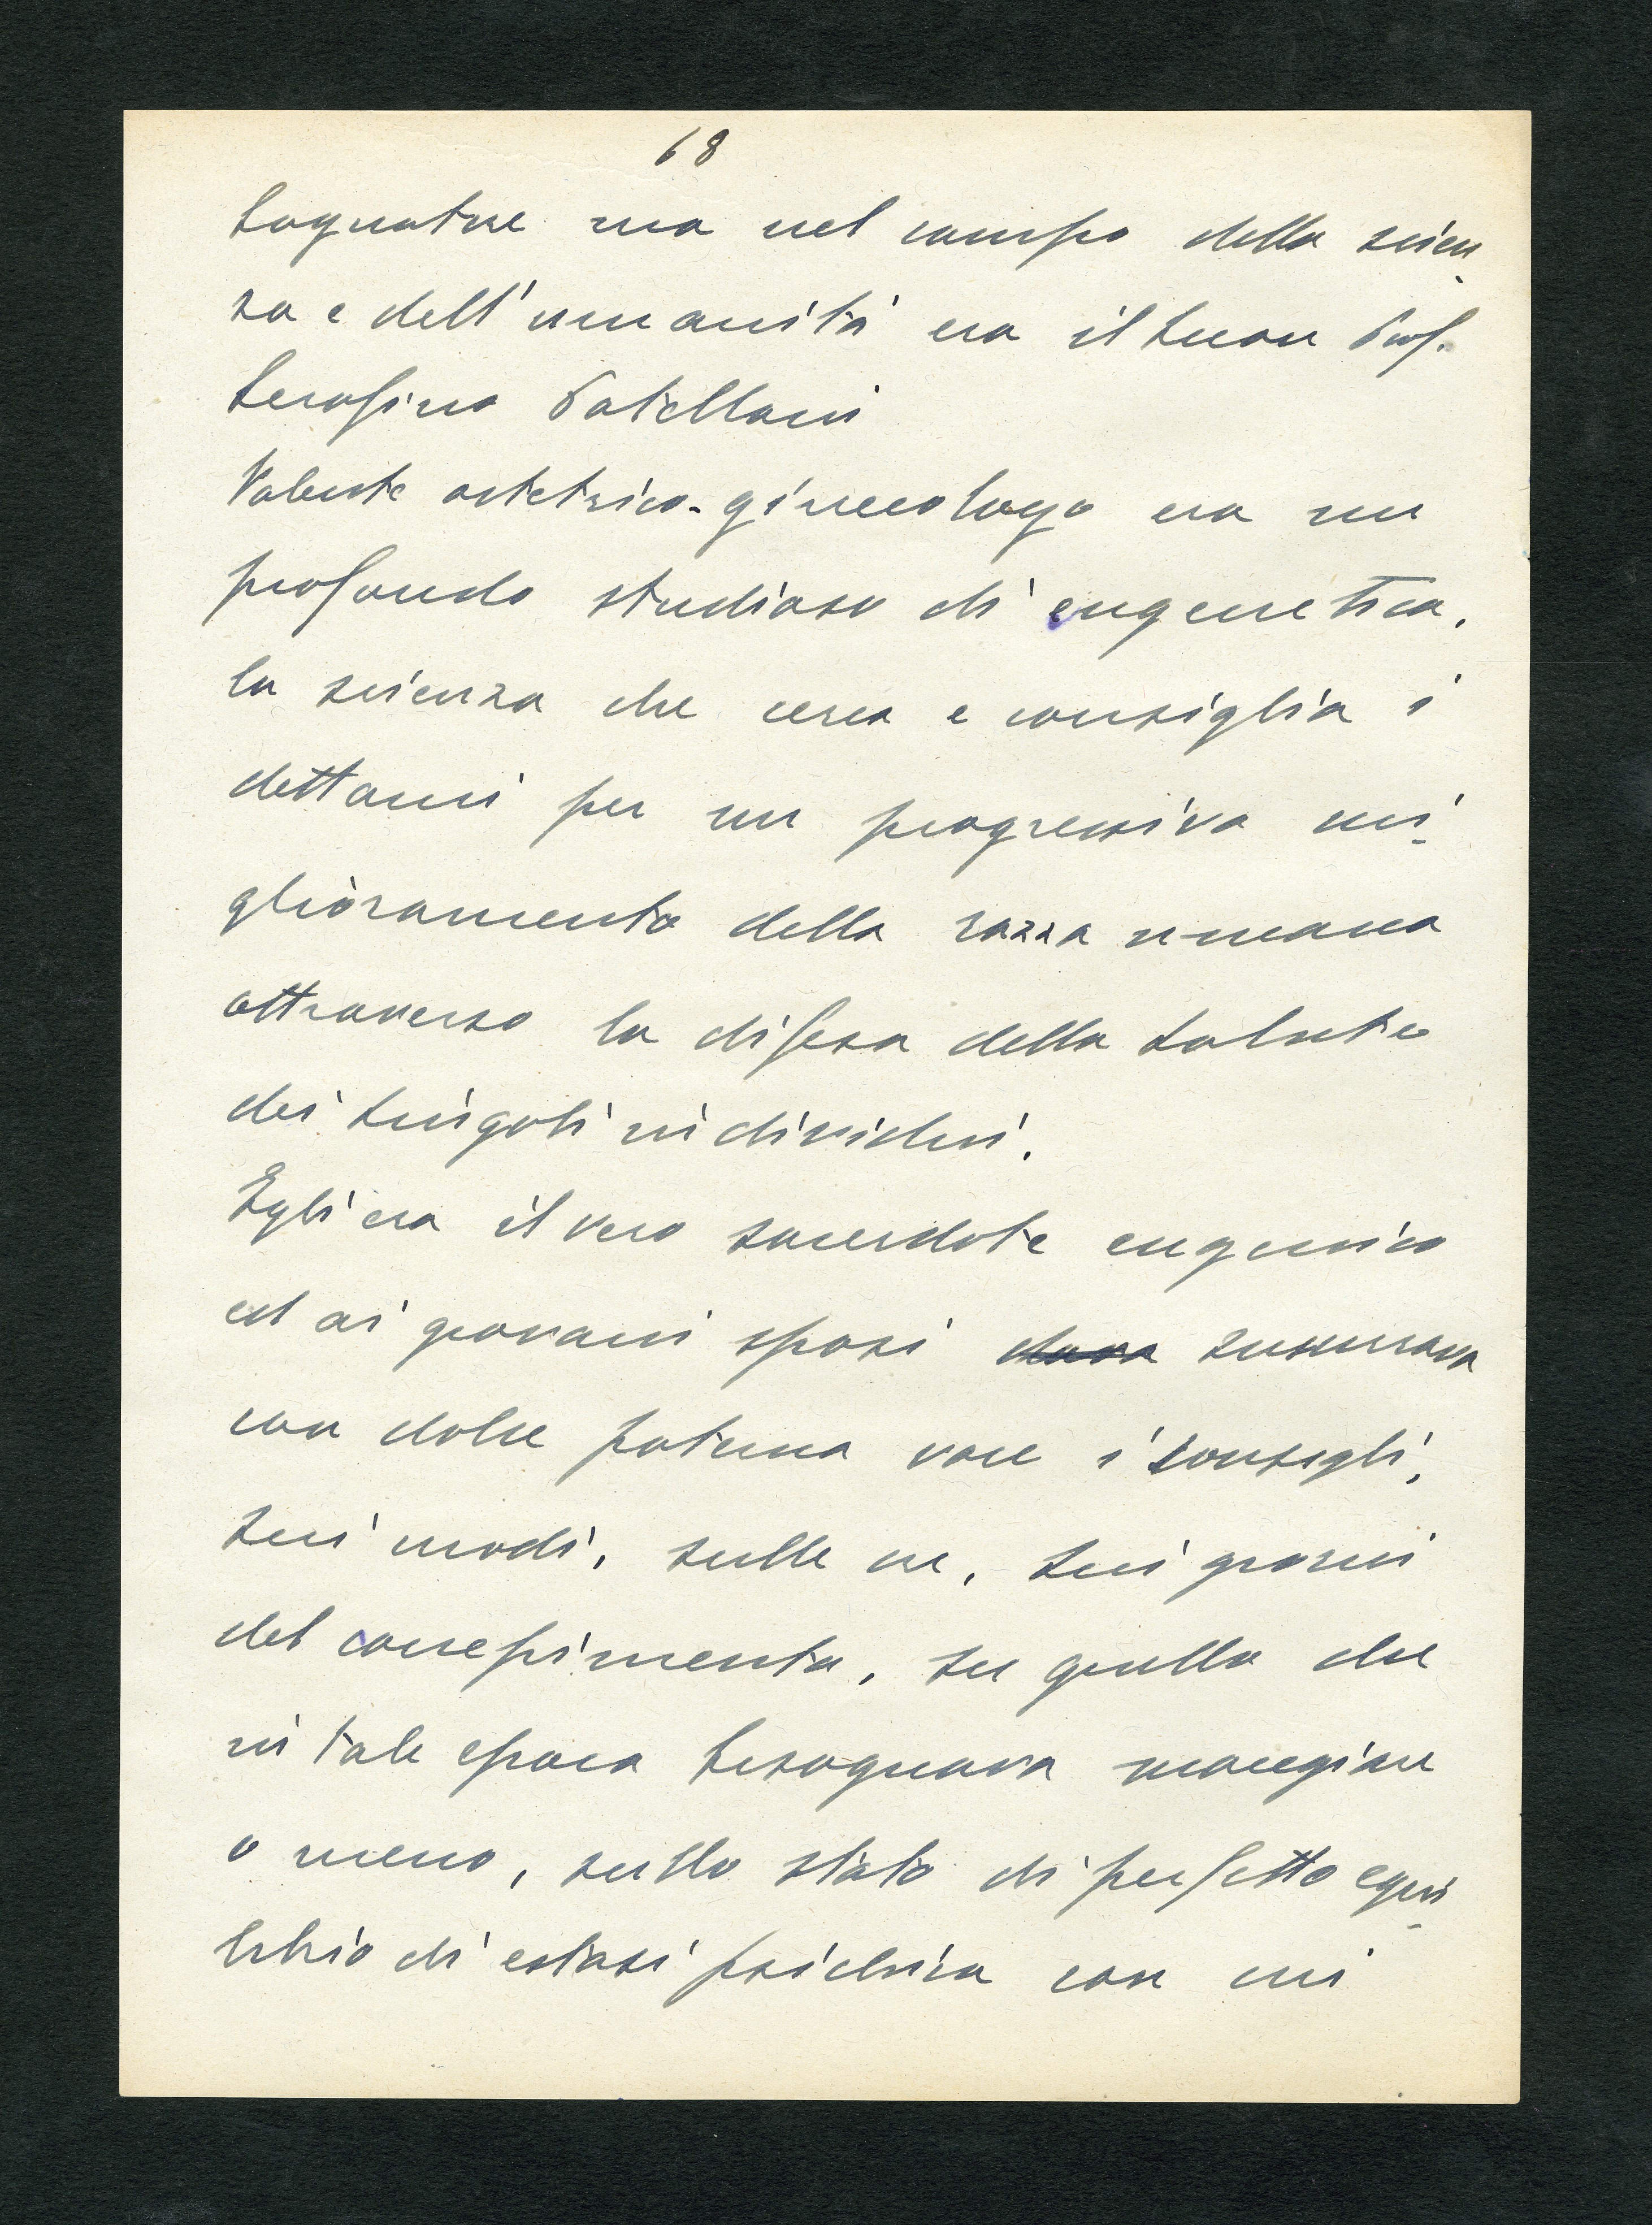 68
sognatore ma nel campo della scien
za e dell'umanità era il buon Prof.
Serafino Patellani
Valente ostetrico-ginecologo era un
profondo studioso di eugenetica,
la scienza che cerca e consiglia i
dettami per un progressivo mi
glioramento della razza umana
attraverso la difesa della salute
dei singoli individui.
Egli era il vero sacerdote eugenico
ed ai giovani sposi dava sussurrava
con dolce paterna voce i consigli,
sui modi, sulle ore, sui giorni
del concepimento, su quello che
in tale epoca bisognava mangiare
o meno, sullo stato di perfetto equi
librio di estasi psichica con cui